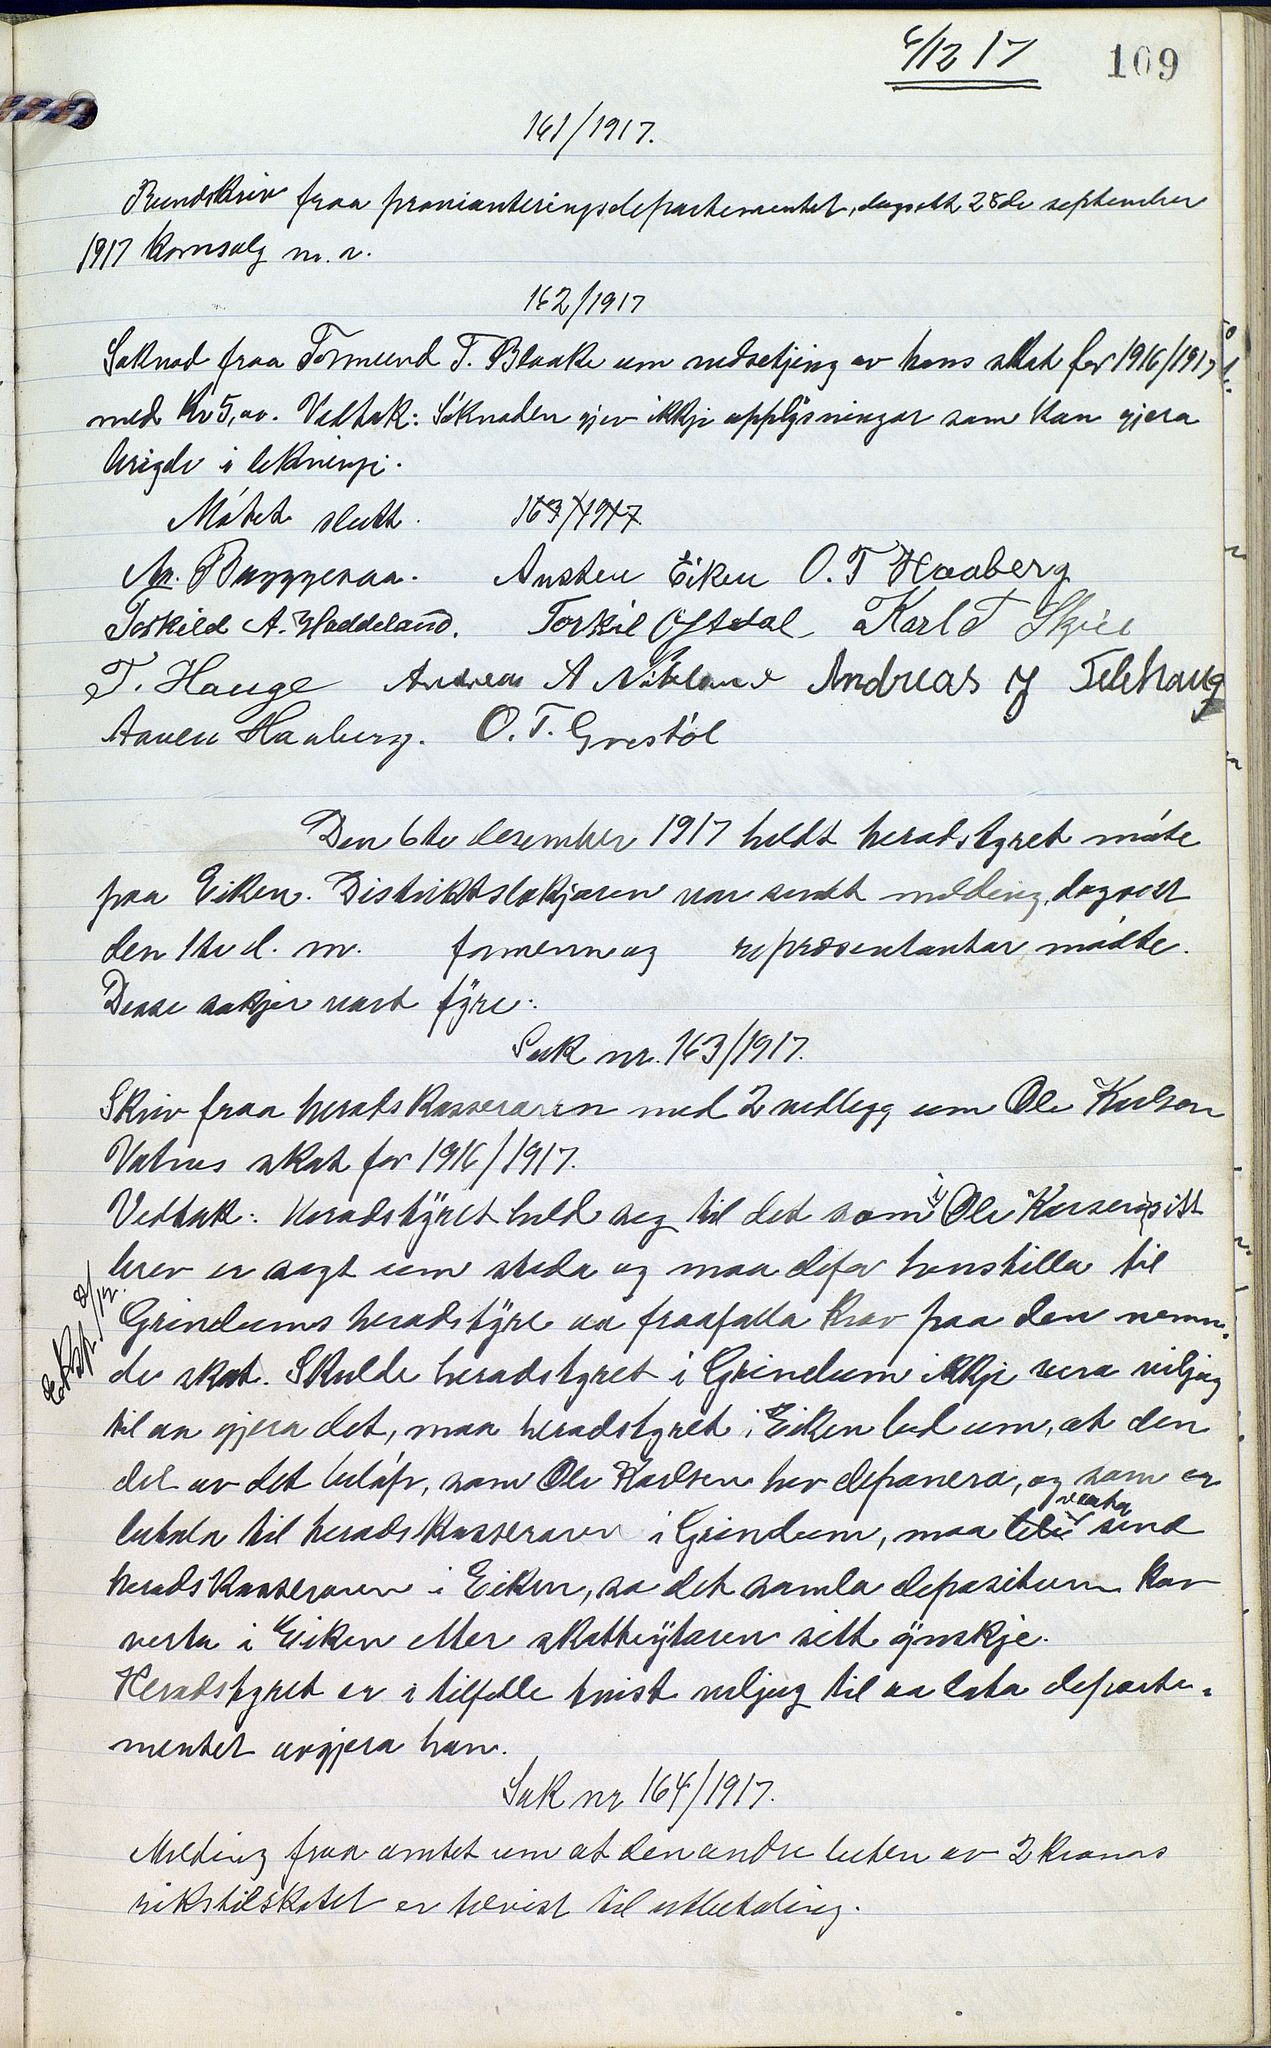 6/12 17
109
161/1917.
Rundskriv fraa provianteringsdepartementet, dagsett 28de september
1917 Kornsalg m. a.
162/1917
Søknad fraa Tormund T. Blaake um nedsetjing av hans skat for 1916/1917
med Kr 5,00. Vedtak: Søknaden gjev ikkje upplysningar som kan gjera
brigde i likningi.
Møtet slutt. 163/1917
Ar. Bryggesaa. Austen Eiken O. T Haaberg
Torkild A. Haddeland. Torkil Oftedal Karl T Skjeie
T. Hauge Andreas A Nökland Andreas J Telhaug
Aanen Haaberg. O. T. Grestøl
Den 6te desember 1917 heldt heradstyret møte
paa Eiken. Distriktslækjaren var sendt melding, dagsett
den 1te d. m. formenn og representantar møtte.
Desse sakjer vart fyre:
Sak nr. 163/1917.
Skriv fraa heradskasseraren med 2 vedlegg um Ole Karlsen
Vatnes skat for 1916/1917.
Vedtak: Heradstyret held seg til det som i Ole Karlsens sitt
brev er sagt um stada og maa difor henstilla til
Grindums heradstyre aa fraafalla krav paa den nemn-
de skat. Skulde heradstyret i Grindum ikkje vera viljug
til aa gjera det, maa heradstyret i Eiken bed um, at den
del av det beløp, som Ole Karlsen hev deponera, og som er
betala til heradskasseraren i Grindum, maa verta send
heradskasseraren i Eiken, so det samla depositum kan
verta i Eiken etter skatteytaren sitt ynskje.
Heradstyret er i tilfelle tvist viljug til aa lata departe-
mentet avgjera han.
Eksp. 8/12.
Sak nr 164/1917.
Melding fraa amtet um at den andre luten av 2 kronors
rikstilskotet er tilvist til utbetaling.